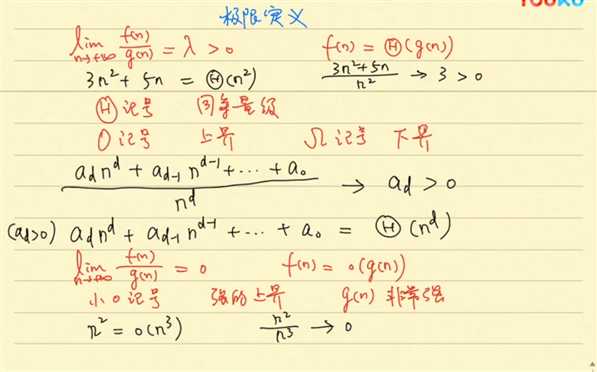 YOUKU
极限定义
lim n→+∞ f(n)/g(n) = λ > 0 f(n) = Θ(g(n))
3n² + 5n = Θ(n²) (3n²+5n)/n² → 3 > 0
Θ记号 同等量级
O记号 上界 Ω记号 下界
(a_d n^d + a_{d-1} n^{d-1} + ⋯ + a_0)/n^d → a_d > 0
(a_d>0) a_d n^d + a_{d-1} n^{d-1} + ⋯ + a_0 = Θ(n^d)
lim n→+∞ f(n)/g(n) = 0 f(n) = o(g(n))
小o记号 强的上界 g(n) 非常强
n² = o(n³) n²/n³ → 0